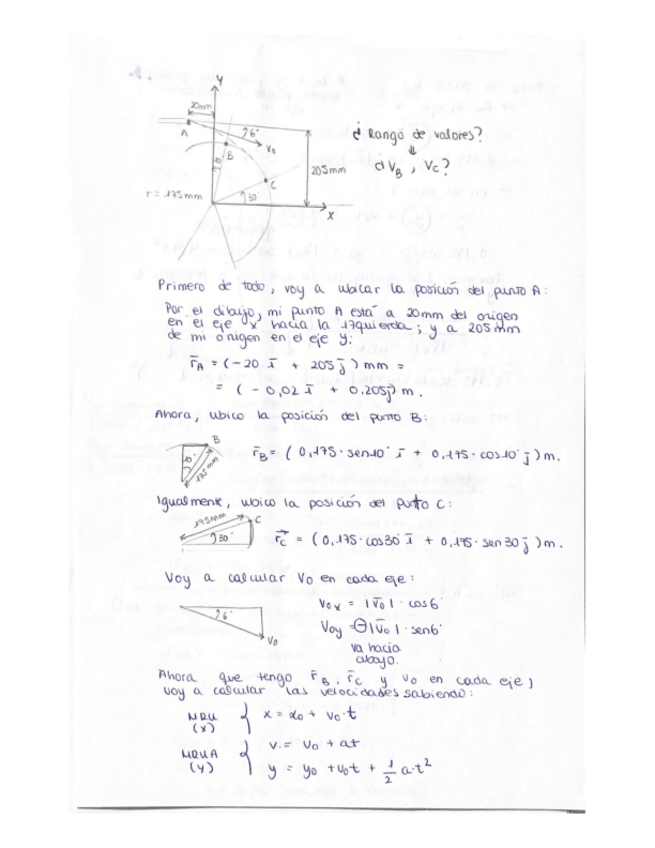 Y
20mm
A
6°
V₀
B
¿Rango de valores?
⇓
10°
C
205mm
¿V_B, V_C?
r = 175mm
30°
X
Primero de todo, voy a ubicar la posición del punto A:
Por el dibujo, mi punto A está a 20mm del origen
en el eje x hacia la izquierda; y a 205mm
de mi origen en el eje y:
r̄_A = (-20 ī + 205 j̄) mm =
= (-0,02 ī + 0,205 j̄) m.
Ahora, ubico la posición del punto B:
B
10°
175mm
r̄_B = (0,175·sen10° ī + 0,175·cos10° j̄) m.
Igualmente, ubico la posición del punto C:
175mm
C
30°
r⃗_C = (0,175·cos30° ī + 0,175·sen30 j̄) m.
Voy a calcular V₀ en cada eje:
6°
V₀
V₀x = |V̄₀|·cos6°
V₀y = ⊖|V̄₀|·sen6°
va hacia
abajo.
Ahora que tengo r̄_B, r̄_C y V₀ en cada eje,
voy a calcular las velocidades sabiendo:
MRU (x) { x = x₀ + v₀·t
MRUA (y) { v = v₀ + at
y = y₀ + v₀t + 1/2 a·t²